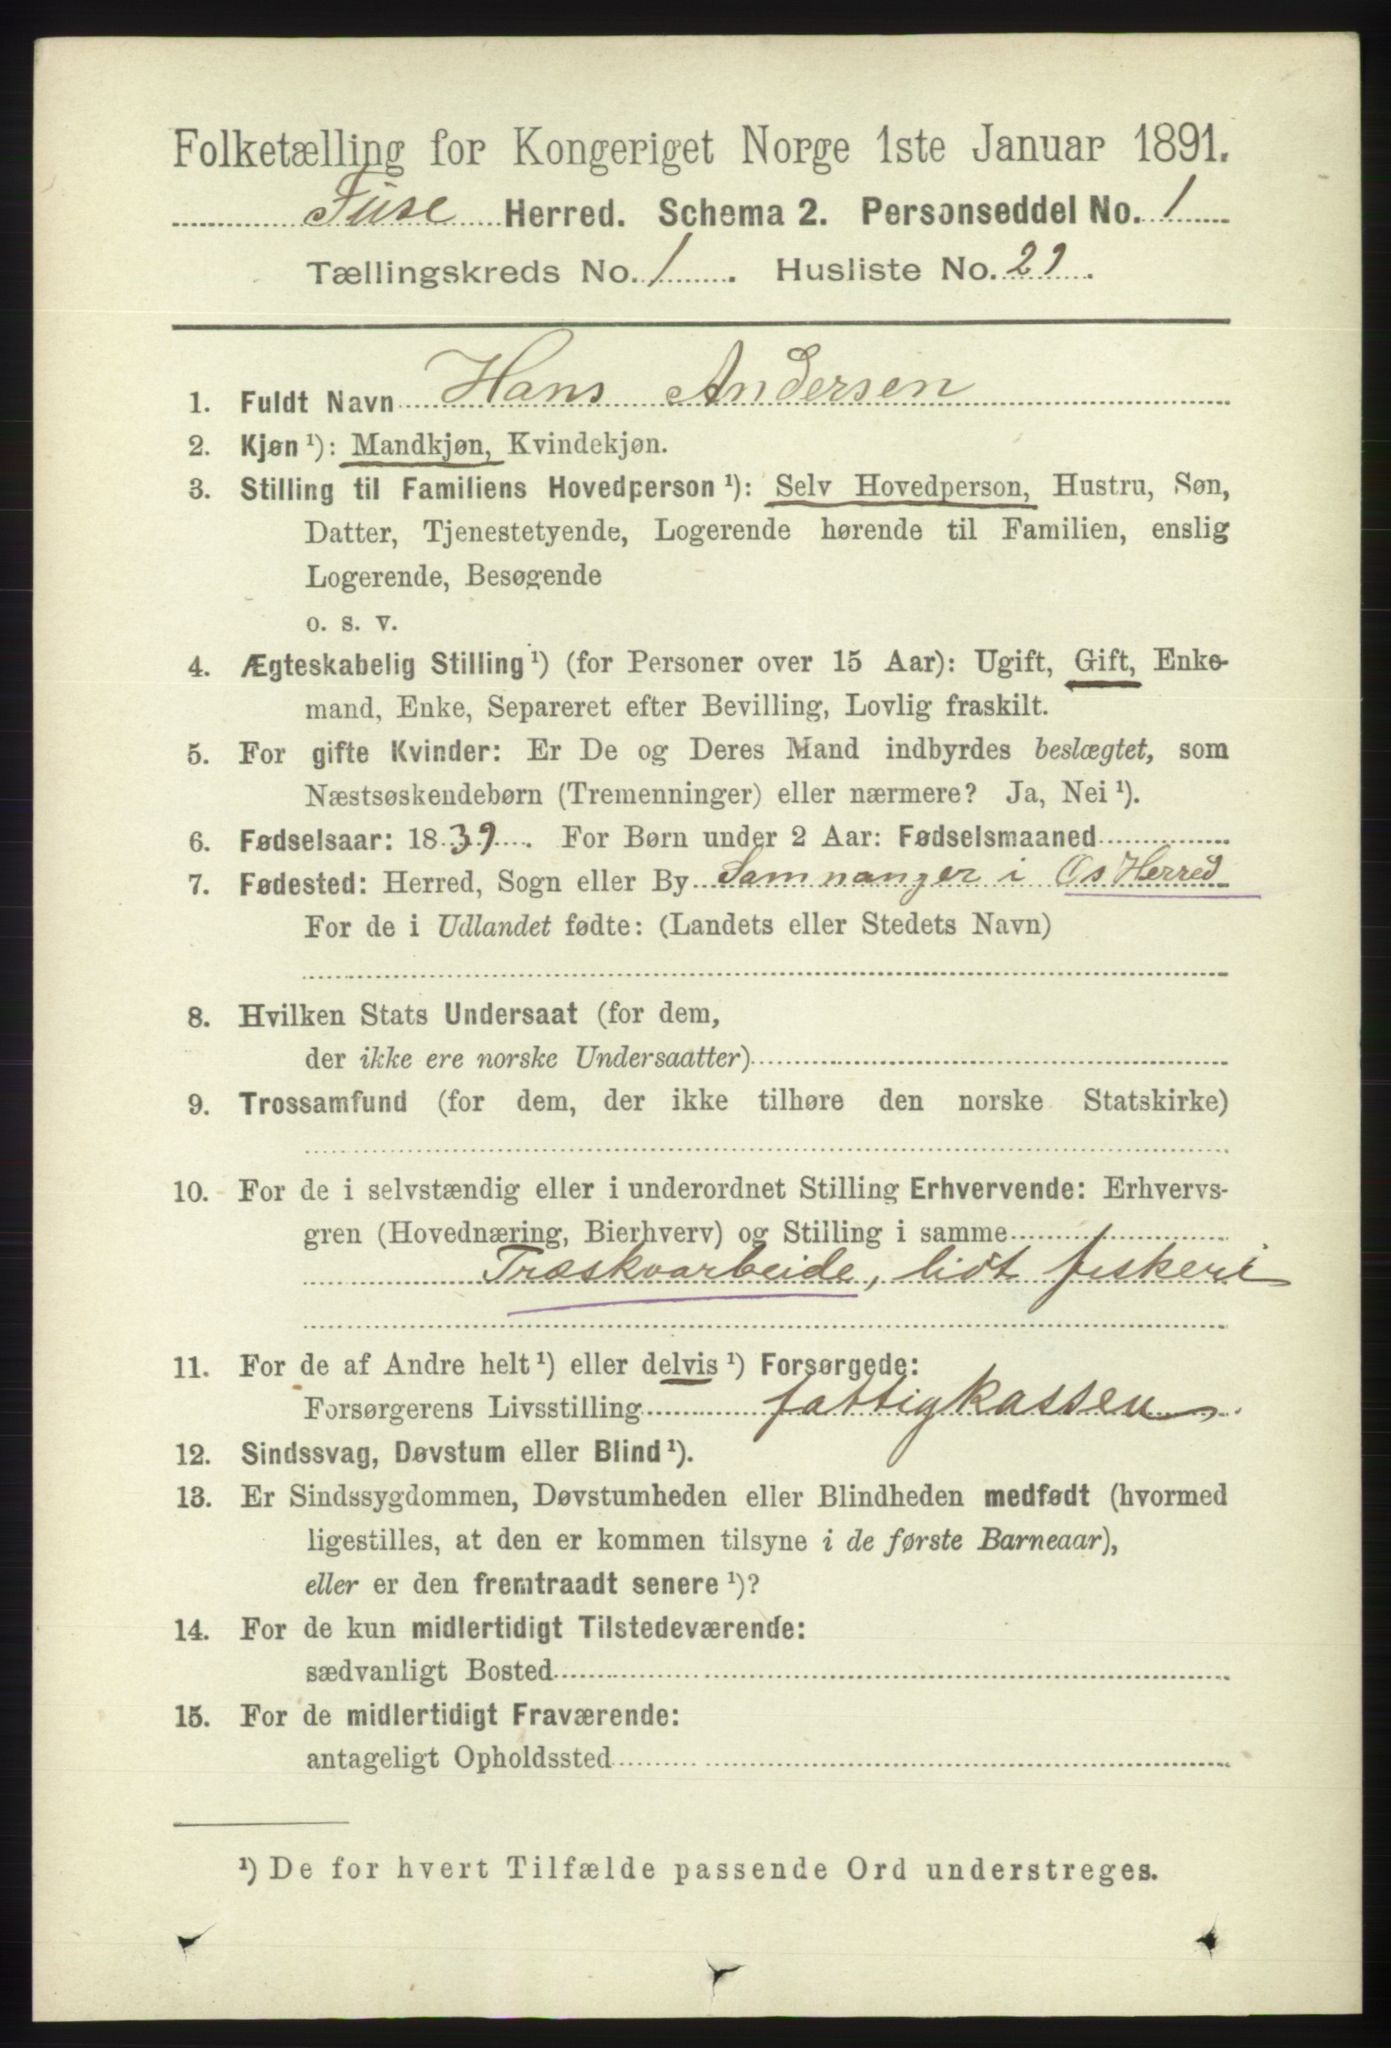 Folketælling for Kongeriget Norge 1ste Januar 1891.
Fuse Herred. Schema 2. Personseddel No. 1
Tællingskreds No. 1. Husliste No. 29.
1. Fuldt Navn Hans Andersen
2. Kjøn¹): Mandkjøn, Kvindekjøn.
3. Stilling til Familiens Hovedperson¹): Selv Hovedperson, Hustru, Søn,
Datter, Tjenestetyende, Logerende hørende til Familien, enslig
Logerende, Besøgende
o. s. v.
4. Ægteskabelig Stilling¹) (for Personer over 15 Aar): Ugift, Gift, Enke-
mand, Enke, Separeret efter Bevilling, Lovlig fraskilt.
5. For gifte Kvinder: Er De og Deres Mand indbyrdes beslægtet, som
Næstsøskendebørn (Tremenninger) eller nærmere? Ja, Nei¹).
6. Fødselsaar: 1839. For Børn under 2 Aar: Fødselsmaaned
7. Fødested: Herred, Sogn eller By Samnanger i Os Herred
For de i Udlandet fødte: (Landets eller Stedets Navn)
8. Hvilken Stats Undersaat (for dem,
der ikke ere norske Undersaatter)
9. Trossamfund (for dem, der ikke tilhøre den norske Statskirke)
10. For de i selvstændig eller i underordnet Stilling Erhvervende: Erhvervs-
gren (Hovednæring, Bierhverv) og Stilling i samme
Træskoarbeide, lidt fiskeri
11. For de af Andre helt¹) eller delvis¹) Forsørgede:
Forsørgerens Livsstilling fattigkassen.
12. Sindssvag, Døvstum eller Blind¹).
13. Er Sindssygdommen, Døvstumheden eller Blindheden medfødt (hvormed
ligestilles, at den er kommen tilsyne i de første Barneaar),
eller er den fremtraadt senere¹)?
14. For de kun midlertidigt Tilstedeværende:
sædvanligt Bosted
15. For de midlertidigt Fraværende:
antageligt Opholdssted
¹) De for hvert Tilfælde passende Ord understreges.